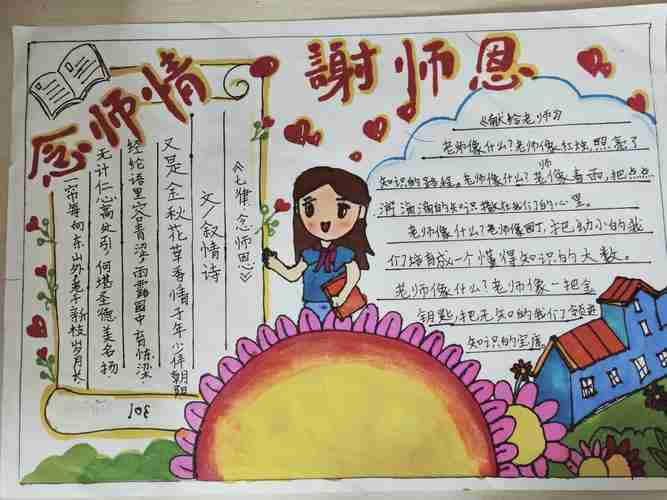 念师情 謝师恩
《七律·念师恩》
文/叙情诗
又是金秋花草香情千年少伴朝阳
经纶语里容青涩,雨露园中育栋梁
无计仁心高处引,何堪圣德美名扬
一帘每向东山外老干新枝岁月长
《献给老师》
老师像什么?老师像红烛,照亮了
知识的路程。老师像什么?老师像春雨,把点点
滴滴的知识撒在我们的心里。
老师像什么?老师像园丁,把幼小的我
们培育成一个懂得知识的大数。
老师像什么?老师像一把金
钥匙,把无知的我们领进
知识的宝库